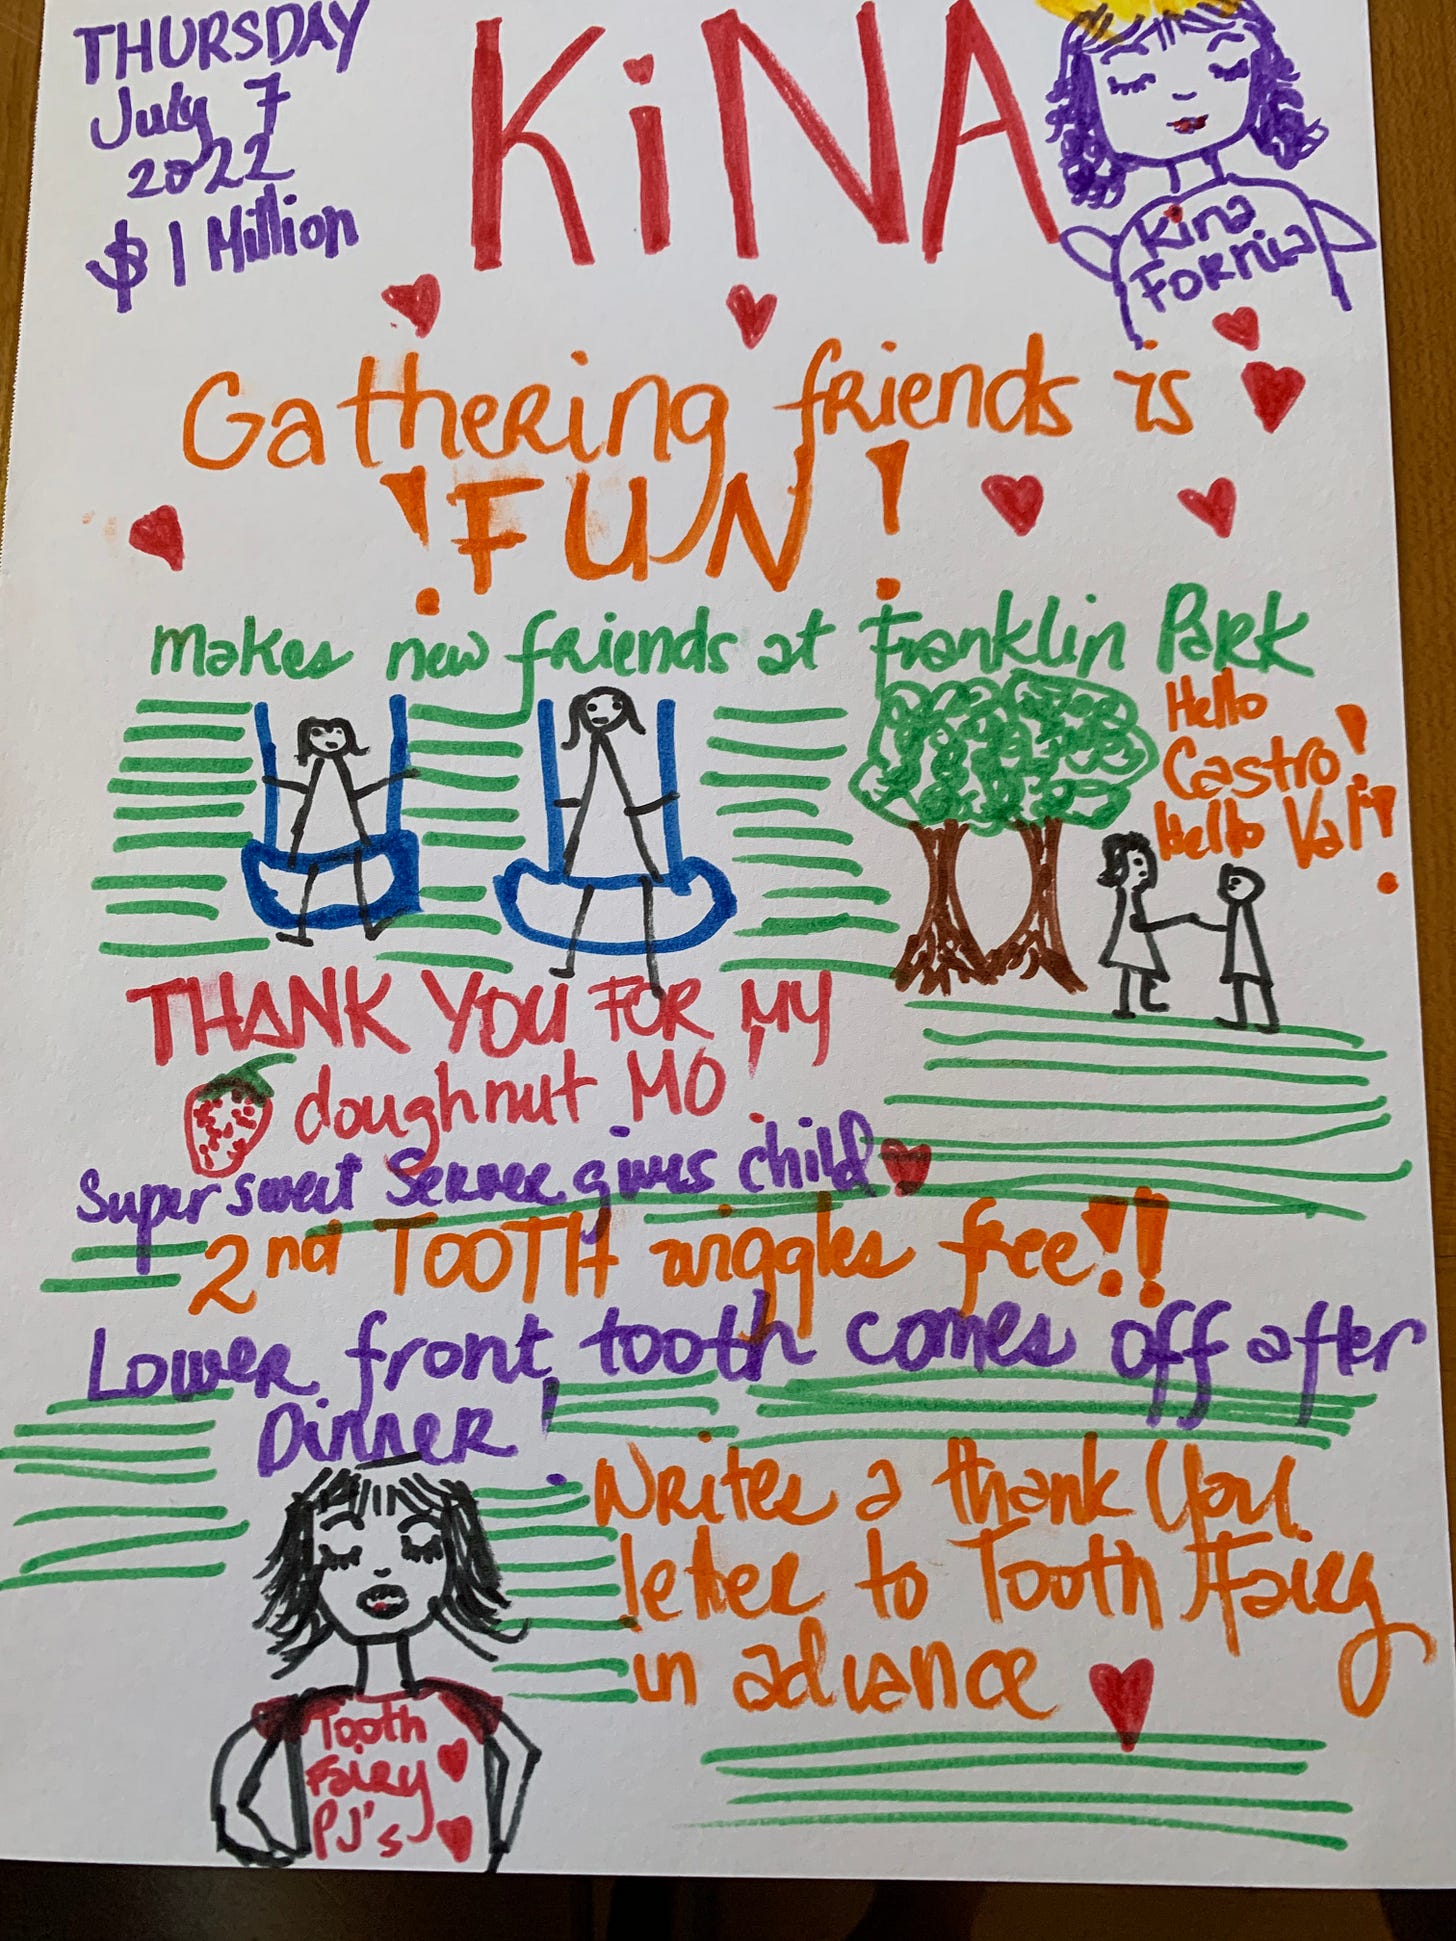 THURSDAY
July 7
2022
$1 Million
KiNA
Kina
Fornia
Gathering friends is
!FUN!
Makes new friends at Franklin Park
Hello
Castro!
Hello Val!!
THANK YOU FOR MY
doughnut MO!
Super sweet Server gives child
2nd TOOTH wiggles free!!
Lower front tooth comes off after
Dinner!
Writes a thank You
letter to Tooth Fairy
in advance
Tooth
Fairy
PJ's